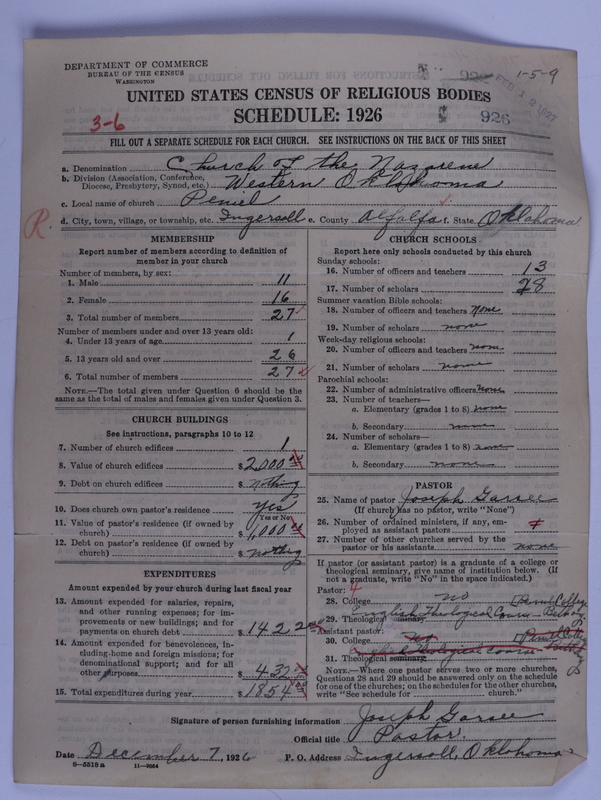 DEPARTMENT OF COMMERCE
BUREAU OF THE CENSUS
WASHINGTON
1-5-9
UNITED STATES CENSUS OF RELIGIOUS BODIES
SCHEDULE: 1926
926
3-6
FILL OUT A SEPARATE SCHEDULE FOR EACH CHURCH. SEE INSTRUCTIONS ON THE BACK OF THIS SHEET
a. Denomination Church of the Nazarene
b. Division (Association, Conference, Diocese, Presbytery, Synod, etc.) Western Oklahoma
c. Local name of church Peniel
d. City, town, village, or township, etc. Ingersoll e. County Alfalfa f. State Oklahoma
R.
MEMBERSHIP
Report number of members according to definition of
member in your church
Number of members, by sex:
1. Male 11
2. Female 16
3. Total number of members 27
Number of members under and over 13 years old:
4. Under 13 years of age 1
5. 13 years old and over 26
6. Total number of members 27
NOTE.—The total given under Question 6 should be the
same as the total of males and females given under Question 3.
CHURCH BUILDINGS
See instructions, paragraphs 10 to 12
7. Number of church edifices 1
8. Value of church edifices $2,000.00
9. Debt on church edifices $nothing
10. Does church own pastor's residence yes
Yes or No
11. Value of pastor's residence (if owned by
church) $1,000.00
12. Debt on pastor's residence (if owned by
church) $nothing
EXPENDITURES
Amount expended by your church during last fiscal year
13. Amount expended for salaries, repairs,
and other running expenses; for im-
provements or new buildings; and for
payments on church debt $1422
14. Amount expended for benevolences, in-
cluding home and foreign missions; for
denominational support; and for all
other purposes $432
15. Total expenditures during year $1854
CHURCH SCHOOLS
Report here only schools conducted by this church
Sunday schools:
16. Number of officers and teachers 13
17. Number of scholars 78
Summer vacation Bible schools:
18. Number of officers and teachers none
19. Number of scholars none
Week-day religious schools:
20. Number of officers and teachers none
21. Number of scholars none
Parochial schools:
22. Number of administrative officers none
23. Number of teachers—
a. Elementary (grades 1 to 8) none
b. Secondary none
24. Number of scholars—
a. Elementary (grades 1 to 8) none
b. Secondary none
PASTOR
25. Name of pastor Joseph Garee
(If church has no pastor, write "None")
26. Number of ordained ministers, if any, em-
ployed as assistant pastors
27. Number of other churches served by the
pastor or his assistants none
If pastor (or assistant pastor) is a graduate of a college or
theological seminary, give name of institution below. (If
not a graduate, write "No" in the space indicated.)
Pastor: 4
28. College no
English Theological Course
29. Theological seminary
Assistant pastor:
30. College no
English Theological Course
31. Theological seminary
NOTE.—Where one pastor serves two or more churches,
Questions 28 and 29 should be answered only on the schedule
for one of the churches; on the schedules for the other churches,
write "See schedule for church."
Signature of person furnishing information Joseph Garee
Official title Pastor.
Date December 7, 1926 P. O. Address Ingersoll, Oklahoma
8—5518 a 11—9664